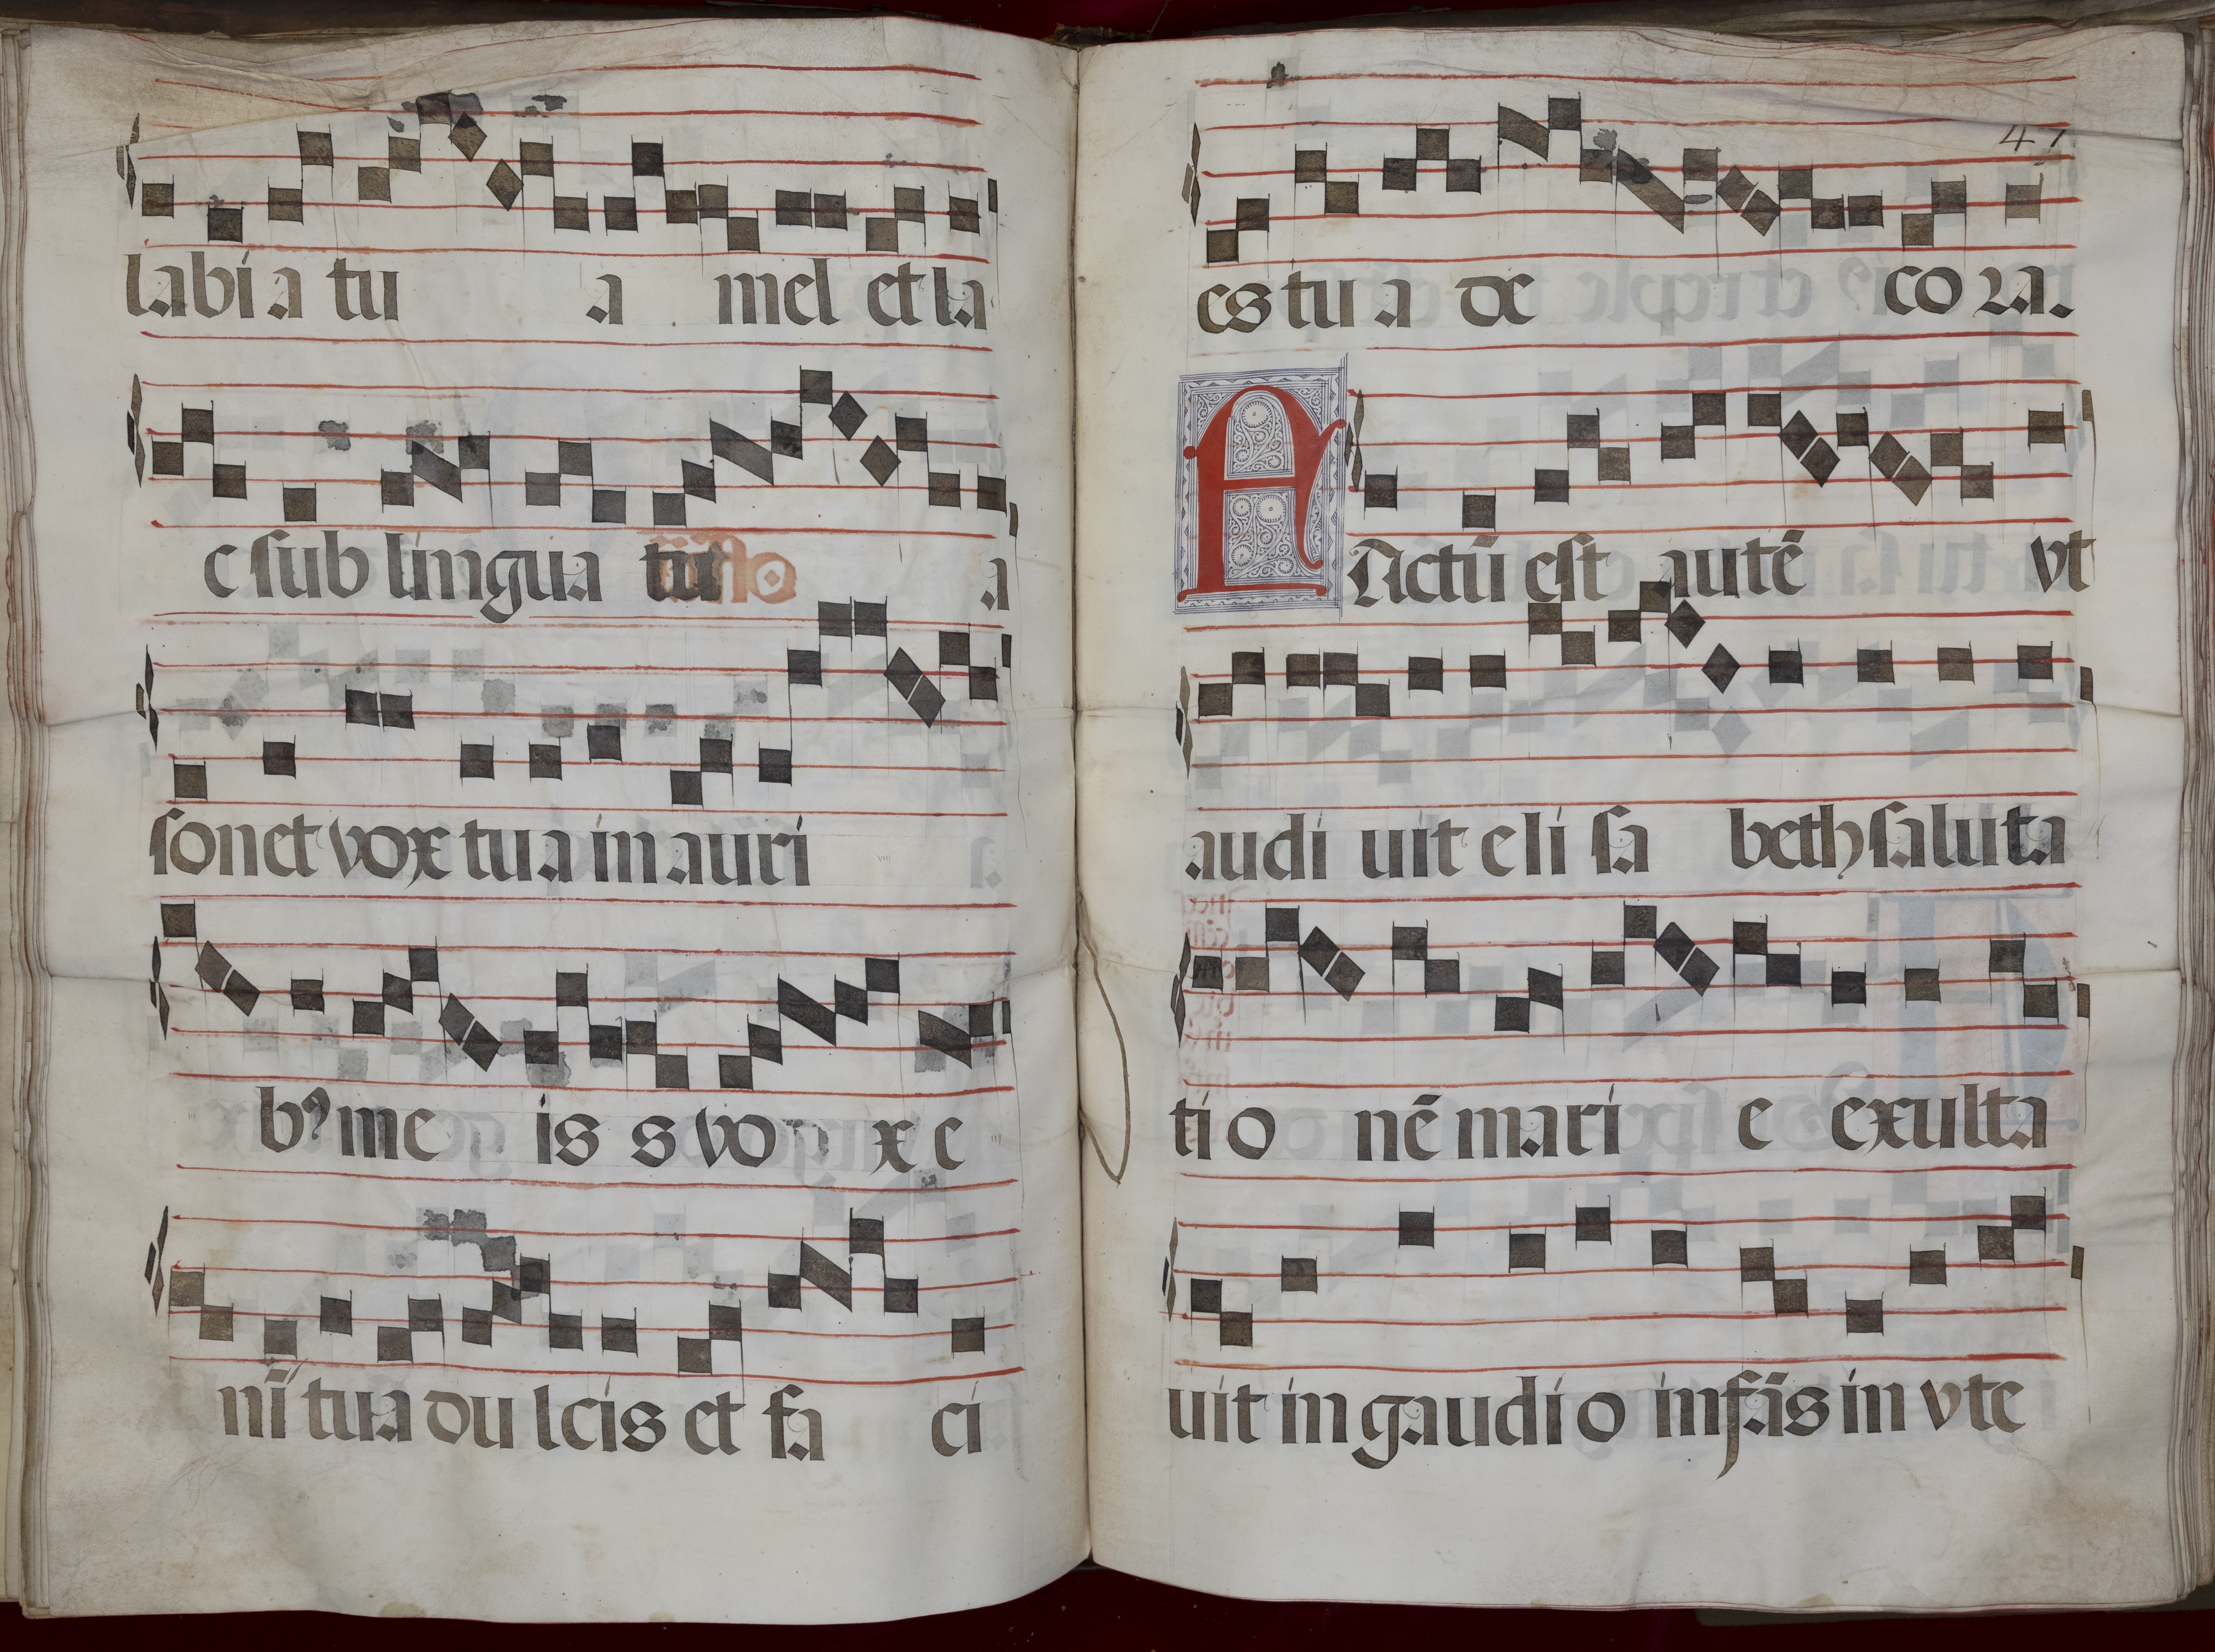 labia tu a mel et la
c sub lingua tu a
sonet vox tua in auri
bꝰ me is s vo x e
nī tua dulcis et fa ci
47
es tua de co ra.
FActū est autē vt
audi uit eli sa beth saluta
ti o nē mari e exulta
uit in gaudio infās in vte